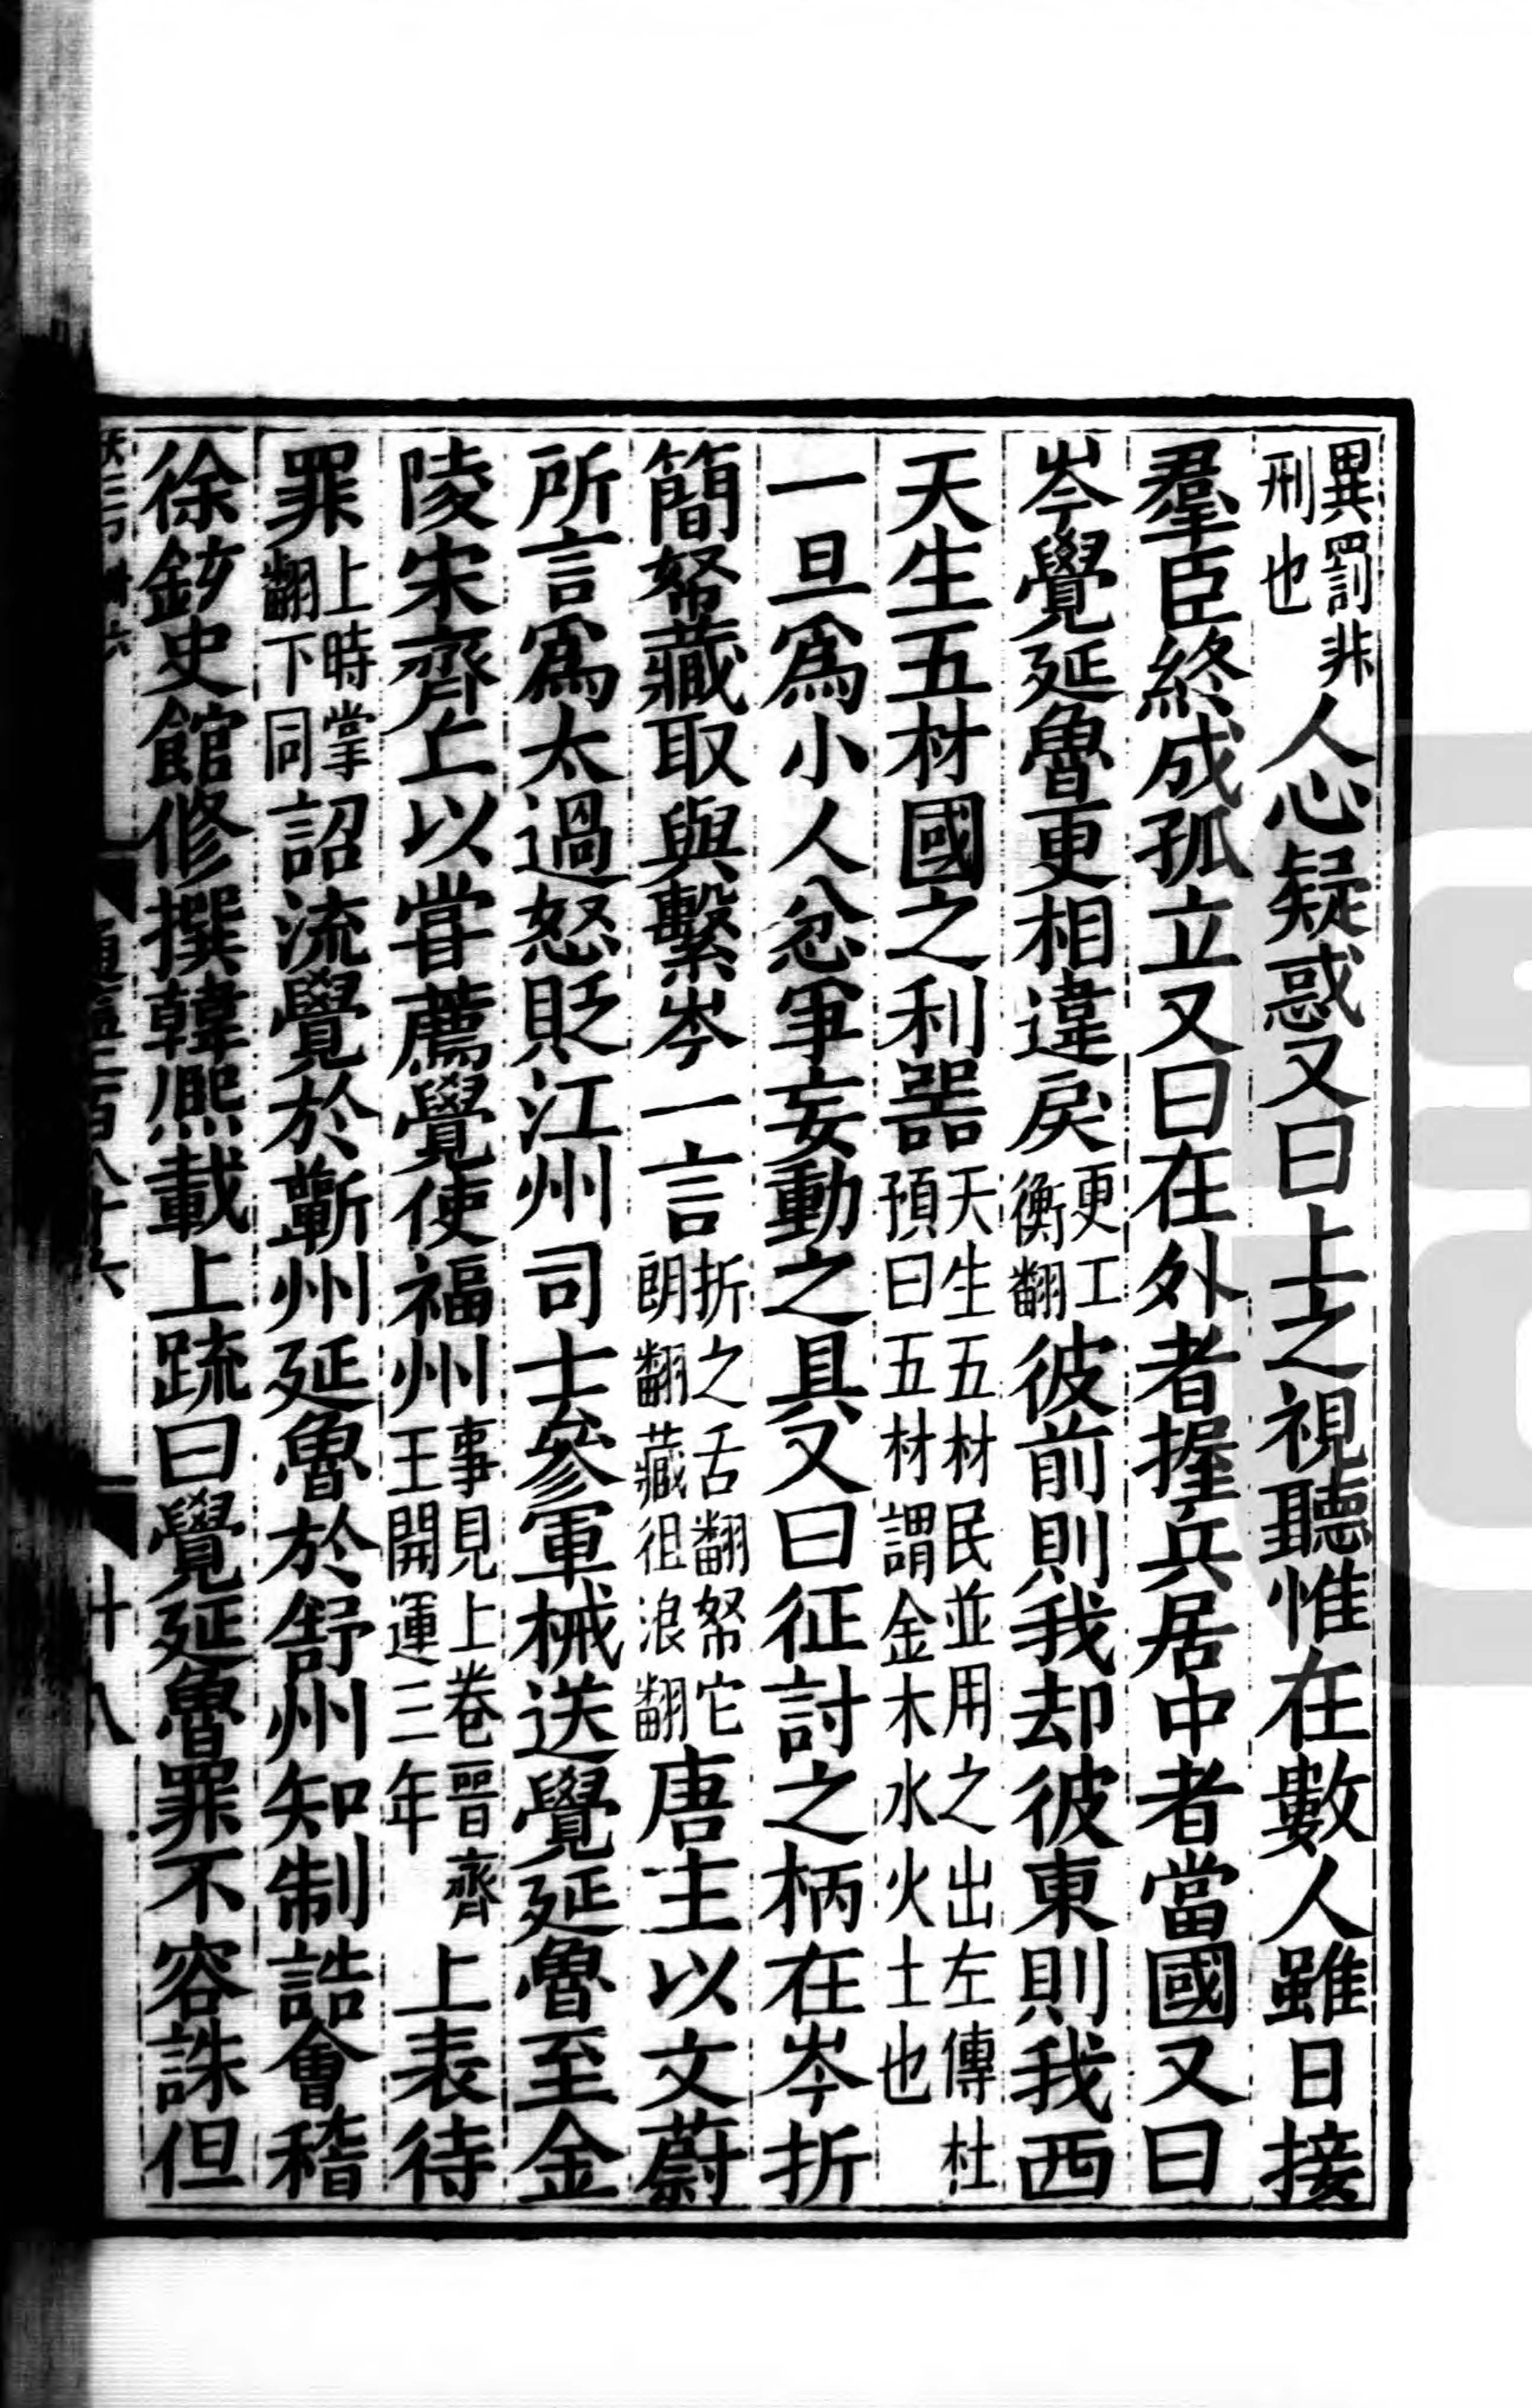 異罰非刑也人心疑惑又曰上之視聽惟在數人雖日接
羣臣終成孤立又曰在外者握兵居中者當國又曰
岑覺延魯更相違戾更工衡翻彼前則我却彼東則我西
天生五材國之利噐天生五材民並用之出左傳杜預曰五材謂金木水火土也
一旦爲小人忿爭妄動之具又曰征討之柄在岑折
簡帑藏取與繫岑一言折之舌翻帑它朗翻藏徂浪翻唐主以文蔚
所言爲太過怒貶江州司士參軍械送覺延魯至金
陵宋齊丘以嘗薦覺使福州事見上卷晉齊王開運三年上表待
罪上時掌翻下同詔流覺於蘄州延魯於舒州知制誥會稽
徐鉉史館修撰韓熙載上疏曰覺延魯罪不容誅但
十八